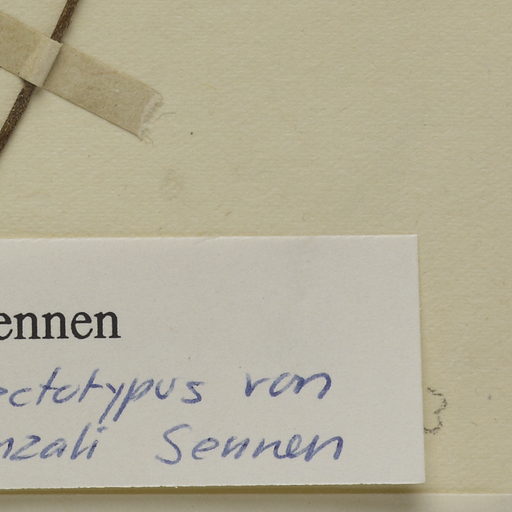 ennen
ectotypus von
nzali Sennen
3